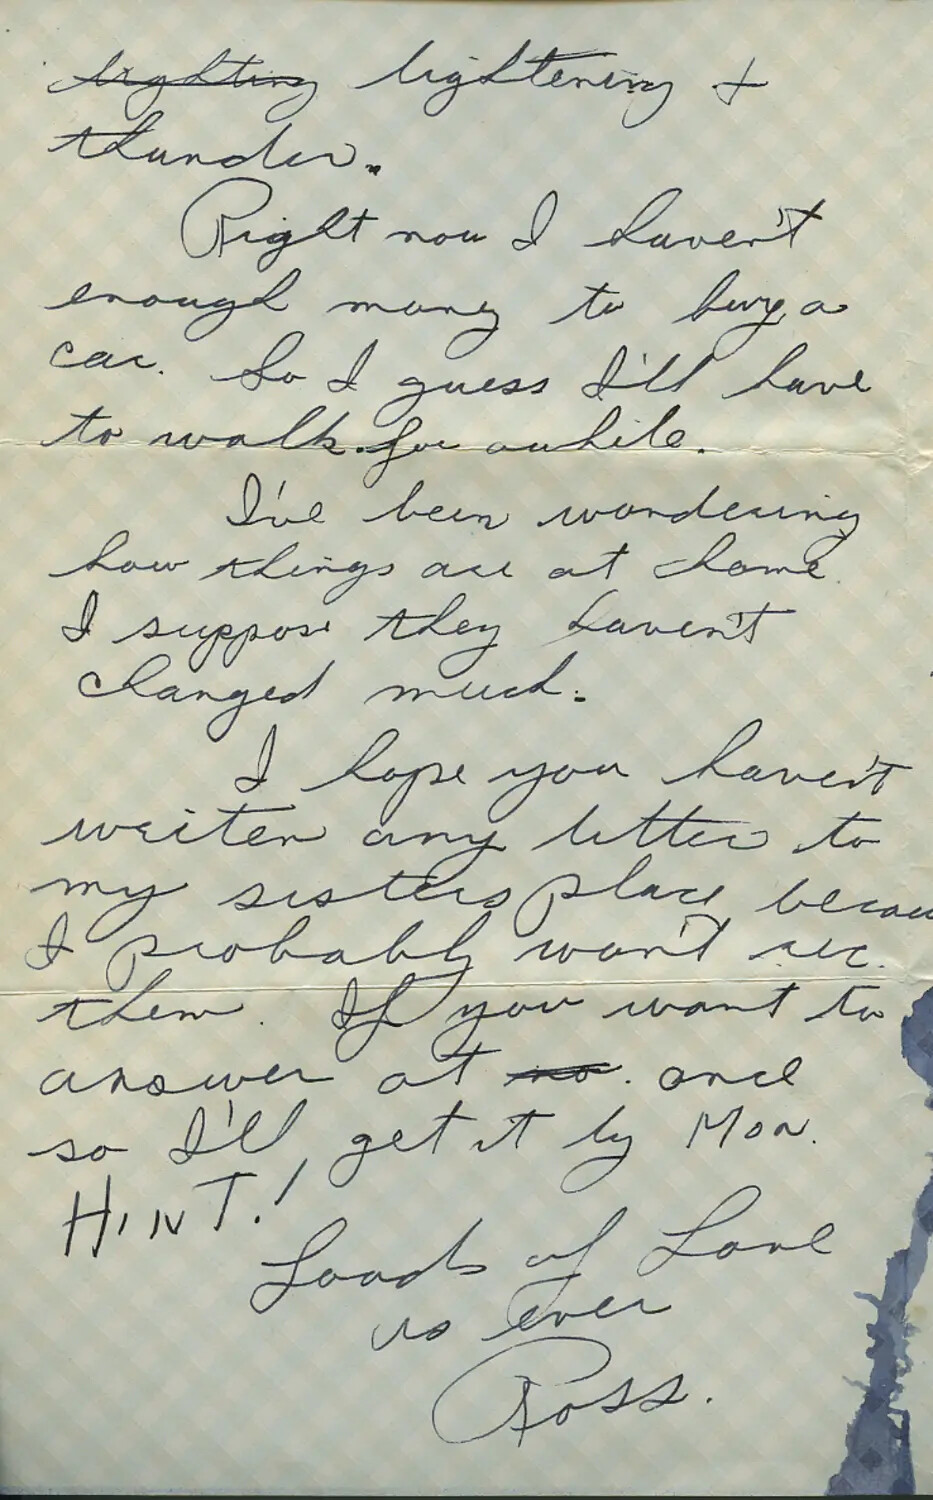 lighting lightening &
thunder.
Right now I haven't
enough money to buy a
car. So I guess I'll have
to walk for awhile.
I've been wondering
how things are at home.
I suppose they haven't
changed much.
I hope you haven't
writen any letter to
my sisters place becau
I probably won't rec.
them. If you want to
answer at no. once
so I'll get it by Mon.
HINT!
Loads of Love
as ever
Ross.